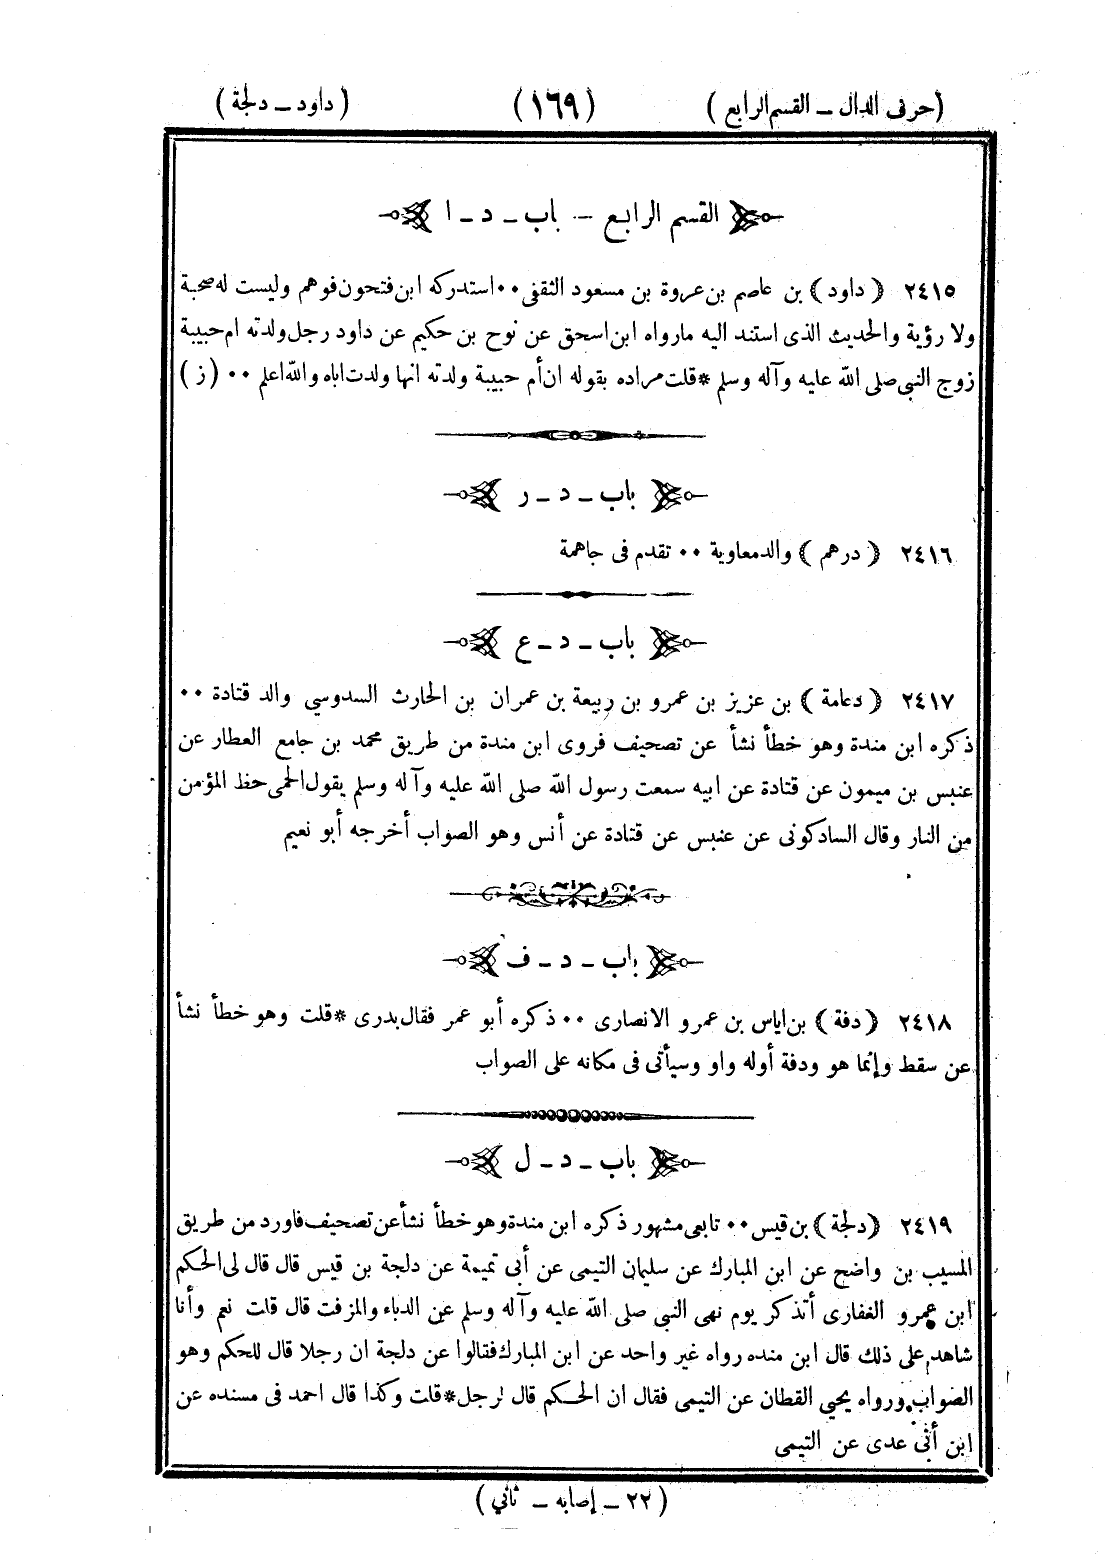 (حرف الدال ــ القسم الرابع) (١٦٩) (داود ــ دلجة)
القسم الرابع – باب ـ د ـ ا
٢٤١٥ ﴿ داود ﴾ بن عاصم بن عروة بن مسعود الثقفى ٠٠ استدركه ابن فتحون فوهم وليست له صحبة
ولا رؤية والحديث الذى استند اليه مارواه ابن اسحق عن نوح بن حكيم عن داود رجل ولدته ام حبيبة
زوج النبى صلى الله عليه وآله وسلم * قلت مراده بقوله ان أم حبيبة ولدته انها ولدت اباه والله اعلم ٠٠ (ز)
باب ـ د ـ ر
٢٤١٦ ﴿ درهم ﴾ والد معاوية ٠٠ تقدم فى جاهمة
باب ـ د ـ ع
٢٤١٧ ﴿ دعامة ﴾ بن عزيز بن عمرو بن ربيعة بن عمران بن الحارث السدوسي والد قتادة ٠٠
ذكره ابن مندة وهو خطأ نشأ عن تصحيف فروى ابن مندة من طريق محمد بن جامع العطار عن
عنبس بن ميمون عن قتادة عن ابيه سمعت رسول الله صلى الله عليه وآله وسلم يقول الحمى حظ المؤمن
من النار وقال السادكونى عن عنبس عن قتادة عن أنس وهو الصواب أخرجه أبو نعيم
باب ـ د ـ ف
٢٤١٨ ﴿ دفة ﴾ بن اياس بن عمرو الانصارى ٠٠ ذكره أبو عمر فقال بدرى * قلت وهو خطأ نشأ
عن سقط وإنما هو ودفة أوله واو وسيأتى فى مكانه على الصواب
باب ـ د ـ ل
٢٤١٩ ﴿ دلجة ﴾ بن قيس ٠٠ تابعى مشهور ذكره ابن مندة وهو خطأ نشأ عن تصحيف فاورد من طريق
المسيب بن واضح عن ابن المبارك عن سليمان التيمى عن أبى تميمة عن دلجة بن قيس قال قال لى الحكم
ابن عمرو الغفارى أتذكر يوم نهى النبى صلى الله عليه وآله وسلم عن الدباء والمزفت قال قلت نعم وأنا
شاهد على ذلك قال ابن منده رواه غير واحد عن ابن المبارك فقالوا عن دلجة ان رجلا قال للحكم وهو
الصواب ورواه يحيي القطان عن التيمى فقال ان الحكم قال لرجل * قلت وكذا قال احمد فى مسنده عن
ابن أبى عدى عن التيمى
(٢٢ ــ إصابه ــ ثاني)